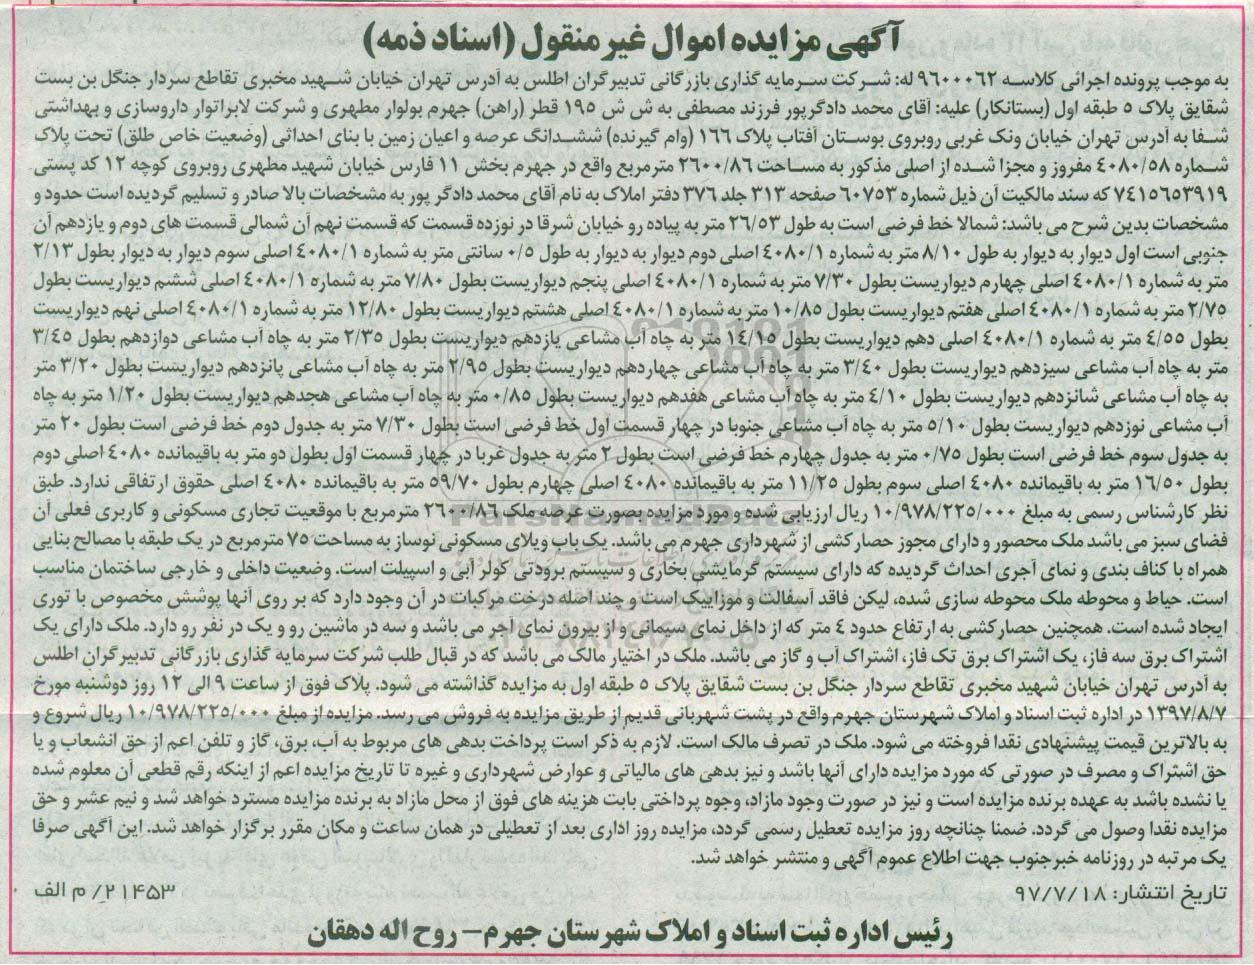 آگهی مزایده اموال غیر منقول (اسناد ذمه)
به موجب پرونده اجرائی کلاسه ۹۶۰۰۰۶۲ له: شرکت سرمایه گذاری بازرگانی تدبیرگران اطلس به آدرس تهران خیابان شهید مخبری تقاطع سردار جنگل بن بست
شقایق پلاک ۵ طبقه اول (بستانکار) علیه: آقای محمد دادگرپور فرزند مصطفی به ش ش ۱۹۵ قطر (راهن) جهرم بولوار مطهری و شرکت لابراتوار داروسازی و بهداشتی
شفا به آدرس تهران خیابان ونک غربی روبروی بوستان آفتاب پلاک ۱۶۶ (وام گیرنده) ششدانگ عرصه و اعیان زمین با بنای احداثی (وضعیت خاص طلق) تحت پلاک
شماره ۴۰۸۰/۵۸ مفروز و مجزا شده از اصلی مذکور به مساحت ۲۶۰۰/۸۶ مترمربع واقع در جهرم بخش ۱۱ فارس خیابان شهید مطهری روبروی کوچه ۱۲ کد پستی
۷۴۱۵۶۵۳۹۱۹ که سند مالکیت آن ذیل شماره ۶۰۷۵۳ صفحه ۳۱۳ جلد ۳۷۶ دفتر املاک به نام آقای محمد دادگر پور به مشخصات بالا صادر و تسلیم گردیده است حدود و
مشخصات بدین شرح می باشد: شمالا خط فرضی است به طول ۲۶/۵۳ متر به پیاده رو خیابان شرقا در نوزده قسمت که قسمت نهم آن شمالی قسمت های دوم و یازدهم آن
جنوبی است اول دیوار به دیوار به طول ۸/۱۰ متر به شماره ۴۰۸۰/۱ اصلی دوم دیوار به دیوار به طول ۰/۵ سانتی متر به شماره ۴۰۸۰/۱ اصلی سوم دیوار به دیوار بطول ۲/۱۳
متر به شماره ۴۰۸۰/۱ اصلی چهارم دیواریست بطول ۷/۳۰ متر به شماره ۴۰۸۰/۱ اصلی پنجم دیواریست بطول ۷/۸۰ متر به شماره ۴۰۸۰/۱ اصلی ششم دیواریست بطول
۲/۷۵ متر به شماره ۴۰۸۰/۱ اصلی هفتم دیواریست بطول ۱۰/۸۵ متر به شماره ۴۰۸۰/۱ اصلی هشتم دیواریست بطول ۱۲/۸۰ متر به شماره ۴۰۸۰/۱ اصلی نهم دیواریست
بطول ۴/۵۵ متر به شماره ۴۰۸۰/۱ اصلی دهم دیواریست بطول ۱۴/۱۵ متر به چاه آب مشاعی یازدهم دیواریست بطول ۲/۳۵ متر به چاه آب مشاعی دوازدهم بطول ۳/۴۵
متر به چاه آب مشاعی سیزدهم دیواریست بطول ۳/۴۰ متر به چاه آب مشاعی چهاردهم دیواریست بطول ۲/۹۵ متر به چاه آب مشاعی پانزدهم دیواریست بطول ۳/۲۰ متر
به چاه آب مشاعی شانزدهم دیواریست بطول ۴/۱۰ متر به چاه آب مشاعی هفدهم دیواریست بطول ۰/۸۵ متر به چاه آب مشاعی هجدهم دیواریست بطول ۱/۲۰ متر به چاه
آب مشاعی نوزدهم دیواریست بطول ۵/۱۰ متر به چاه آب مشاعی جنوبا در چهار قسمت اول خط فرضی است بطول ۷/۳۰ متر به جدول دوم خط فرضی است بطول ۲۰ متر
به جدول سوم خط فرضی است بطول ۰/۷۵ متر به جدول چهارم خط فرضی است بطول ۲ متر به جدول غربا در چهار قسمت اول بطول دو متر به باقیمانده ۴۰۸۰ اصلی دوم
بطول ۱۶/۵۰ متر به باقیمانده ۴۰۸۰ اصلی سوم بطول ۱۱/۲۵ متر به باقیمانده ۴۰۸۰ اصلی چهارم بطول ۵۹/۷۰ متر به باقیمانده ۴۰۸۰ اصلی حقوق ارتفاقی ندارد. طبق
نظر کارشناس رسمی به مبلغ ۱۰/۹۷۸/۲۲۵/۰۰۰ ریال ارزیابی شده و مورد مزایده بصورت عرصه ملک ۲۶۰۰/۸۶ مترمربع با موقعیت تجاری مسکونی و کاربری فعلی آن
فضای سبز می باشد ملک محصور و دارای مجوز حصارکشی از شهرداری جهرم می باشد. یک باب ویلای مسکونی نوساز به مساحت ۷۵ مترمربع در یک طبقه با مصالح بنایی
همراه با کناف بندی و نمای آجری احداث گردیده که دارای سیستم گرمایشی بخاری و سیستم برودتی کولر آبی و اسپیلت است. وضعیت داخلی و خارجی ساختمان مناسب
است. حیاط و محوطه ملک محوطه سازی شده، لیکن فاقد آسفالت و موزاییک است و چند اصله درخت مرکبات در آن وجود دارد که بر روی آنها پوشش مخصوص با توری
ایجاد شده است. همچنین حصارکشی به ارتفاع حدود ۴ متر که از داخل نمای سیمانی و از بیرون نمای آجر می باشد و سه در ماشین رو و یک در نفر رو دارد. ملک دارای یک
اشتراک برق سه فاز، یک اشتراک برق تک فاز، اشتراک آب و گاز می باشد. ملک در اختیار مالک می باشد که در قبال طلب شرکت سرمایه گذاری بازرگانی تدبیرگران اطلس
به آدرس تهران خیابان شهید مخبری تقاطع سردار جنگل بن بست شقایق پلاک ۵ طبقه اول به مزایده گذاشته می شود. پلاک فوق از ساعت ۹ الی ۱۲ روز دوشنبه مورخ
۱۳۹۷/۸/۷ در اداره ثبت اسناد و املاک شهرستان جهرم واقع در پشت شهربانی قدیم از طریق مزایده به فروش می رسد. مزایده از مبلغ ۱۰/۹۷۸/۲۲۵/۰۰۰ ریال شروع و
به بالاترین قیمت پیشنهادی نقدا فروخته می شود. ملک در تصرف مالک است. لازم به ذکر است پرداخت بدهی های مربوط به آب، برق، گاز و تلفن اعم از حق انشعاب و یا
حق اشتراک و مصرف در صورتی که مورد مزایده دارای آنها باشد و نیز بدهی های مالیاتی و عوارض شهرداری و غیره تا تاریخ مزایده اعم از اینکه رقم قطعی آن معلوم شده
یا نشده باشد به عهده برنده مزایده است و نیز در صورت وجود مازاد، وجوه پرداختی بابت هزینه های فوق از محل مازاد به برنده مزایده مسترد خواهد شد و نیم عشر و حق
مزایده نقدا وصول می گردد. ضمنا چنانچه روز مزایده تعطیل رسمی گردد، مزایده روز اداری بعد از تعطیلی در همان ساعت و مکان مقرر برگزار خواهد شد. این آگهی صرفا
یک مرتبه در روزنامه خبرجنوب جهت اطلاع عموم آگهی و منتشر خواهد شد.
تاریخ انتشار: ۹۷/۷/۱۸
۲۱۴۵۳/ م الف
رئیس اداره ثبت اسناد و املاک شهرستان جهرم – روح اله دهقان